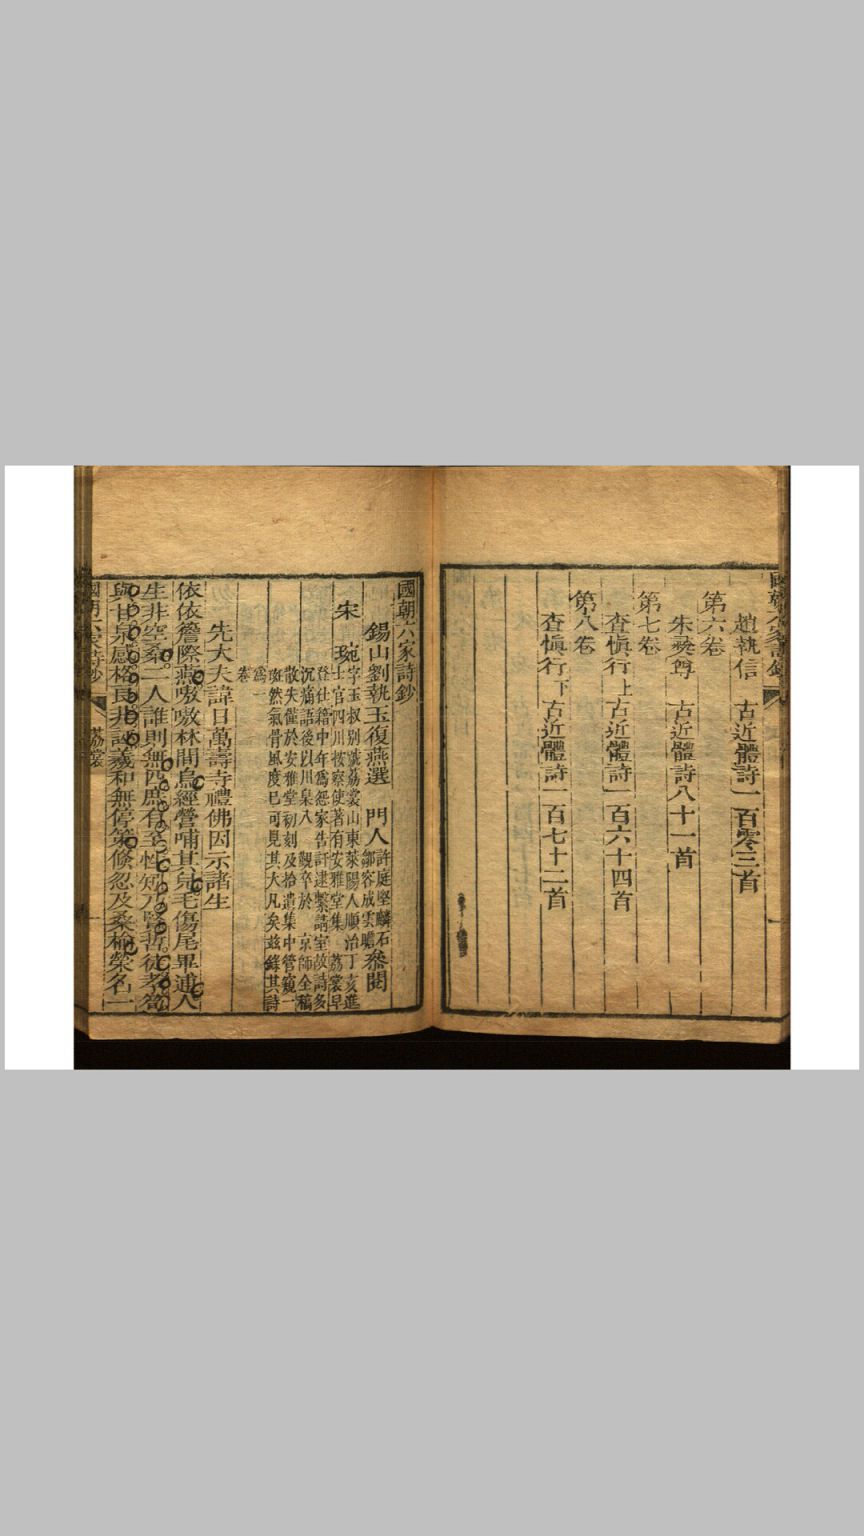 趙執信　古近體詩一百零三首
第六卷
朱彝尊　古近體詩八十一首
第七卷
查愼行上　古近體詩一百六十四首
第八卷
查愼行下　古近體詩一百七十二首
國朝六家詩鈔
錫山劉執玉復燕選　門人許庭堅麟石鄒容成雲瞻叅閱
宋琬
字玉叔別號荔裳山東萊陽人順治丁亥進
士官四川按察使著有安雅堂集　荔裳早
登仕籍中年爲怨家告訐逮繫請室故詩多
沉痛語後以川臬入　觀卒於　京師全稿
散失僅於安雅堂初刻及拾遺集中管窺一
斑然氣骨風度已可見其大凡矣玆錄其詩
爲一
卷
先大夫諱日萬壽寺禮佛因示諸生
依依簷際燕嗷嗷林間烏經營哺其兒毛傷尾畢逋人
生非空桑一人誰則無匹庶有至性矧乃賢哲徒孝筍
與甘泉感格良非誣羲和無停策倏忽及桑榆榮名一
國朝六家詩鈔　荔裳　一